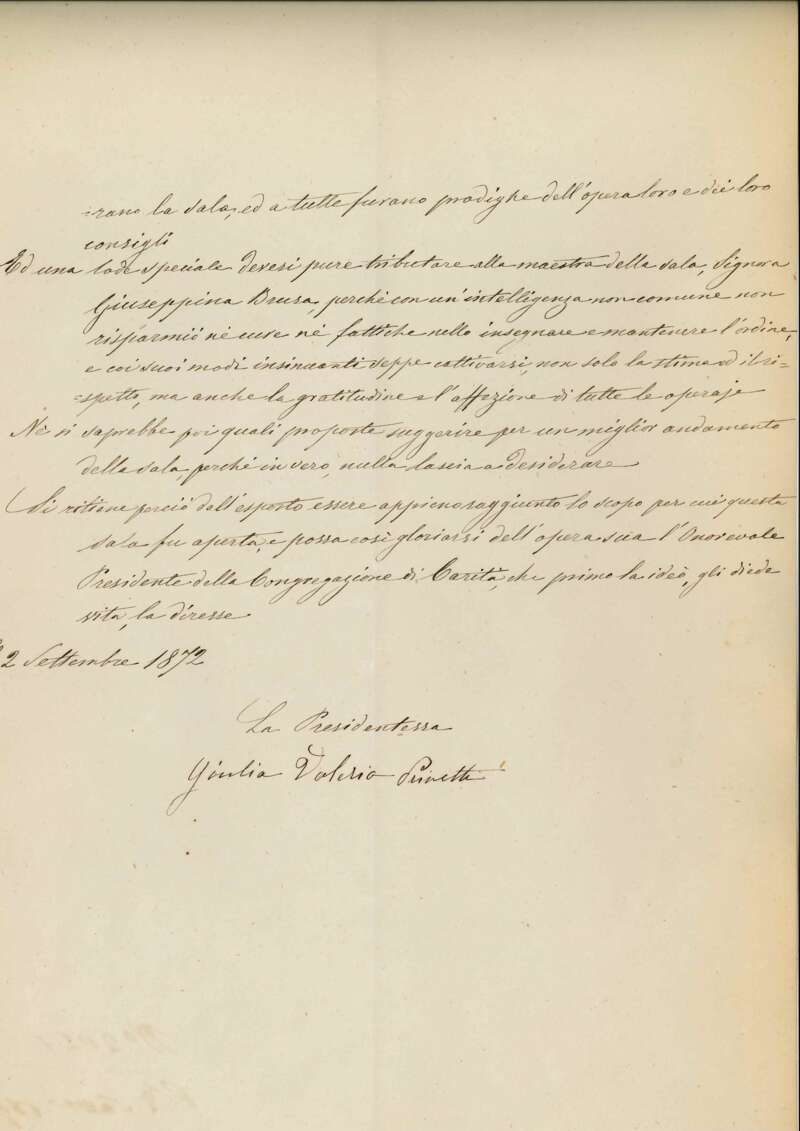 =rano la sala, ed a tutte furono prodighe dell'opera loro e dei loro
consigli
Ed una lode speciale devesi pure tributare alla maestra della sala, Signora
Giuseppina Brusa, perchè con un'intelligenza non comune non
risparmiò nè cure nè fattiche nello insegnare e mantenere l'ordine,
e coi suoi modi insinuanti seppe cattivarsi, non solo la stima ed il ri=
=spetto, ma anche la gratitudine e l'affezione di tutte le operaje
Nè si saprebbe poi quali proposte suggerire per un miglior andamento
della sala, perchè in vero, nulla lascia a desiderare
Si ritiene perciò dall'esposto essere appieno raggiunto lo scopo per cui questa
sala fu aperta, e possa così gloriarsi dell'opera sua l'Onorevole
Presidente della Congregazione di Carità, che primo la ideò, gli diede
vita, la diresse
2 Settembre 1872
La Presidentessa
Giulia Valerio